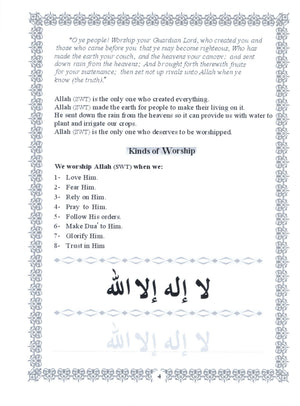 "O ye people! Worship your Guardian Lord, who created you and
those who came before you that ye may become righteous, Who has
made the earth your couch, and the heavens your canopy; and sent
down rain from the heavens; And brought forth therewith fruits
for your sustenance; then set not up rivals unto Allah when ye
know (the truth)."
Allah (SWT) is the only one who created everything.
Allah (SWT) made the earth for people to make their living on it.
He sent down the rain from the heavens so it can provide us with water to
plant and irrigate our crops.
Allah (SWT) is the only one who deserves to be worshipped.
Kinds of Worship
We worship Allah (SWT) when we:
1- Love Him.
2- Fear Him.
3- Rely on Him.
4- Pray to Him.
5- Follow His orders.
6- Make Dua' to Him.
7- Glorify Him.
8- Trust in Him
لا إله إلا الله
لا إله إلا الله
4